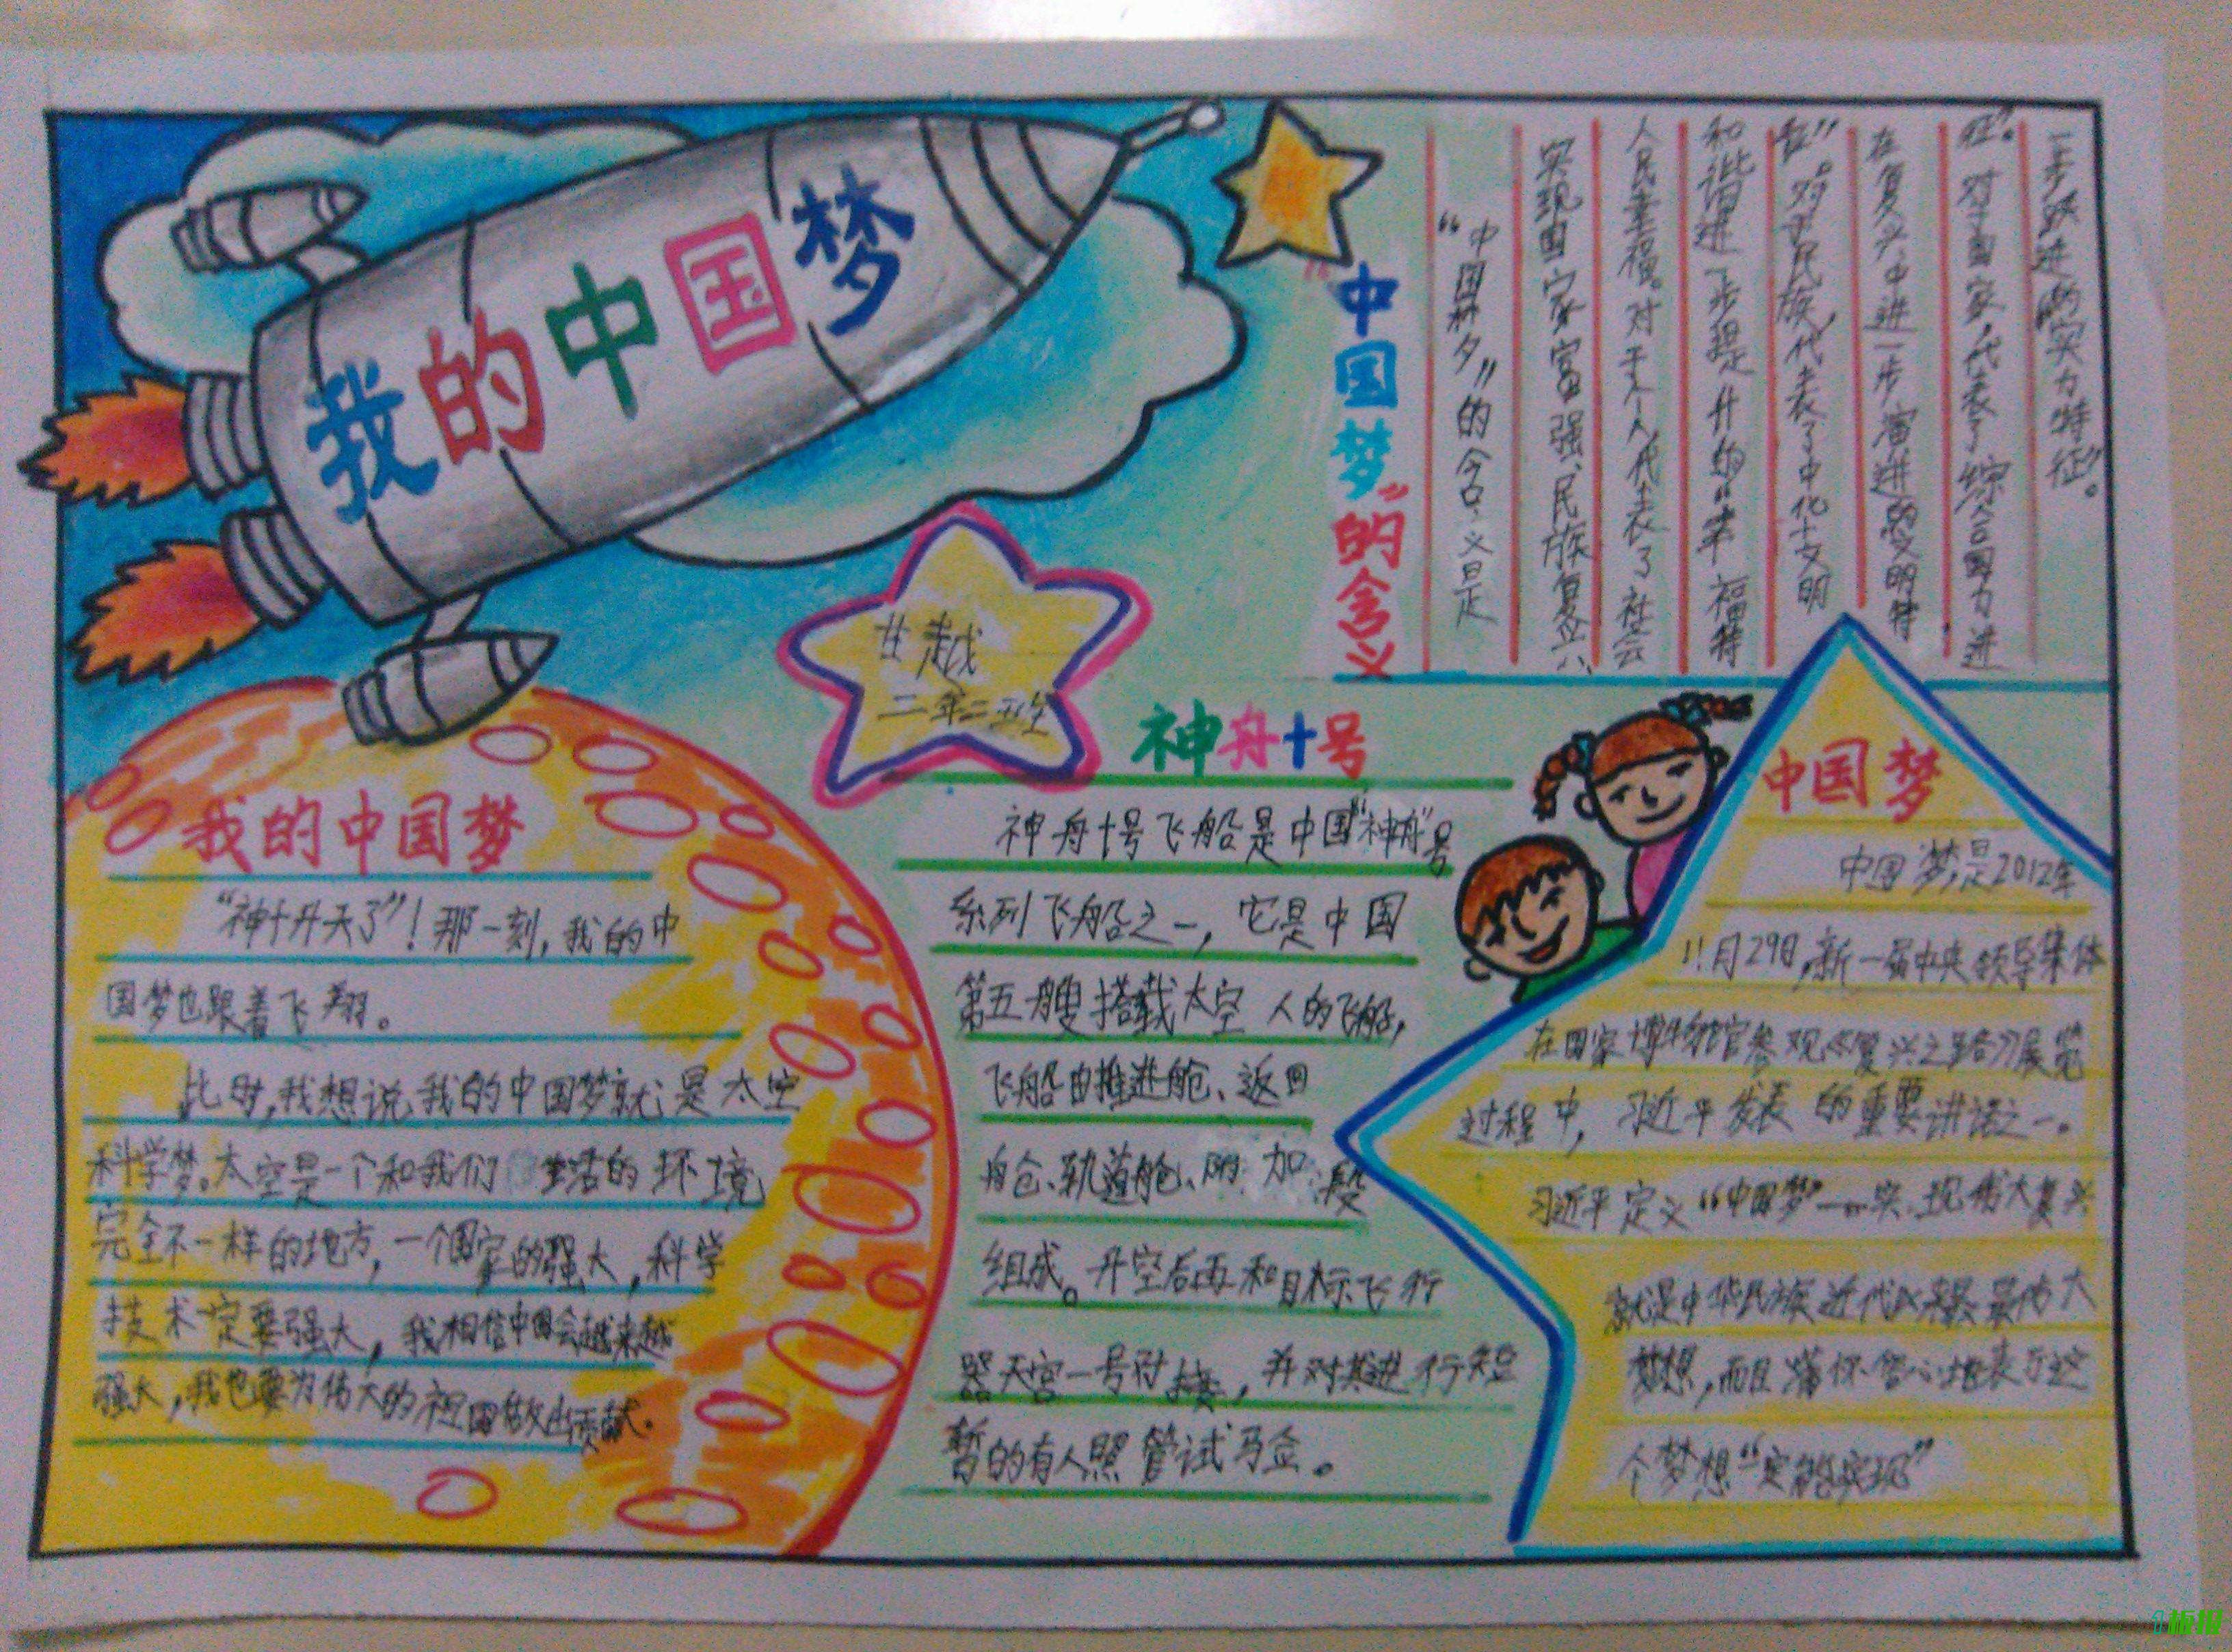 我的中国梦
世越
二年二班
"中国梦"的含义
"中国梦"的含义是
实现国家富强、民族复兴、
人民幸福。对于个人,代表了社会
和谐进一步提升的"幸福特
征"。对于民族,代表了中化文明
在复兴中进一步演进的"文明特
征"。对于国家,代表了综合国力进
一步跃进的"实力特征"。
我的中国梦
"神十升天了"!那一刻,我的中
国梦也跟着飞翔。
此时,我想说,我的中国梦就是太空
科学梦。太空是一个和我们生活的环境
完全不一样的地方,一个国家的强大,科学
技术一定要强大,我相信中国会越来越
强大,我也要为伟大的祖国做出贡献。
神舟十号
神舟十号飞船是中国"神舟"号
系列飞船之一,它是中国
第五艘搭载太空人的飞船,
飞船由推进舱、返回
舱、轨道舱、附加段
组成。升空后再和目标飞行
器天宫一号对接,并对其进行短
暂的有人照管试验。
中国梦
中国梦,是2012年
11月29日,新一届中央领导集体
在国家博物馆参观《复兴之路》展览
过程中,习近平发表的重要讲话之一。
习近平定义"中国梦"—实现伟大复兴
就是中华民族近代以来最伟大
梦想,而且满怀信心地表示这
个梦想"一定能实现"
板报